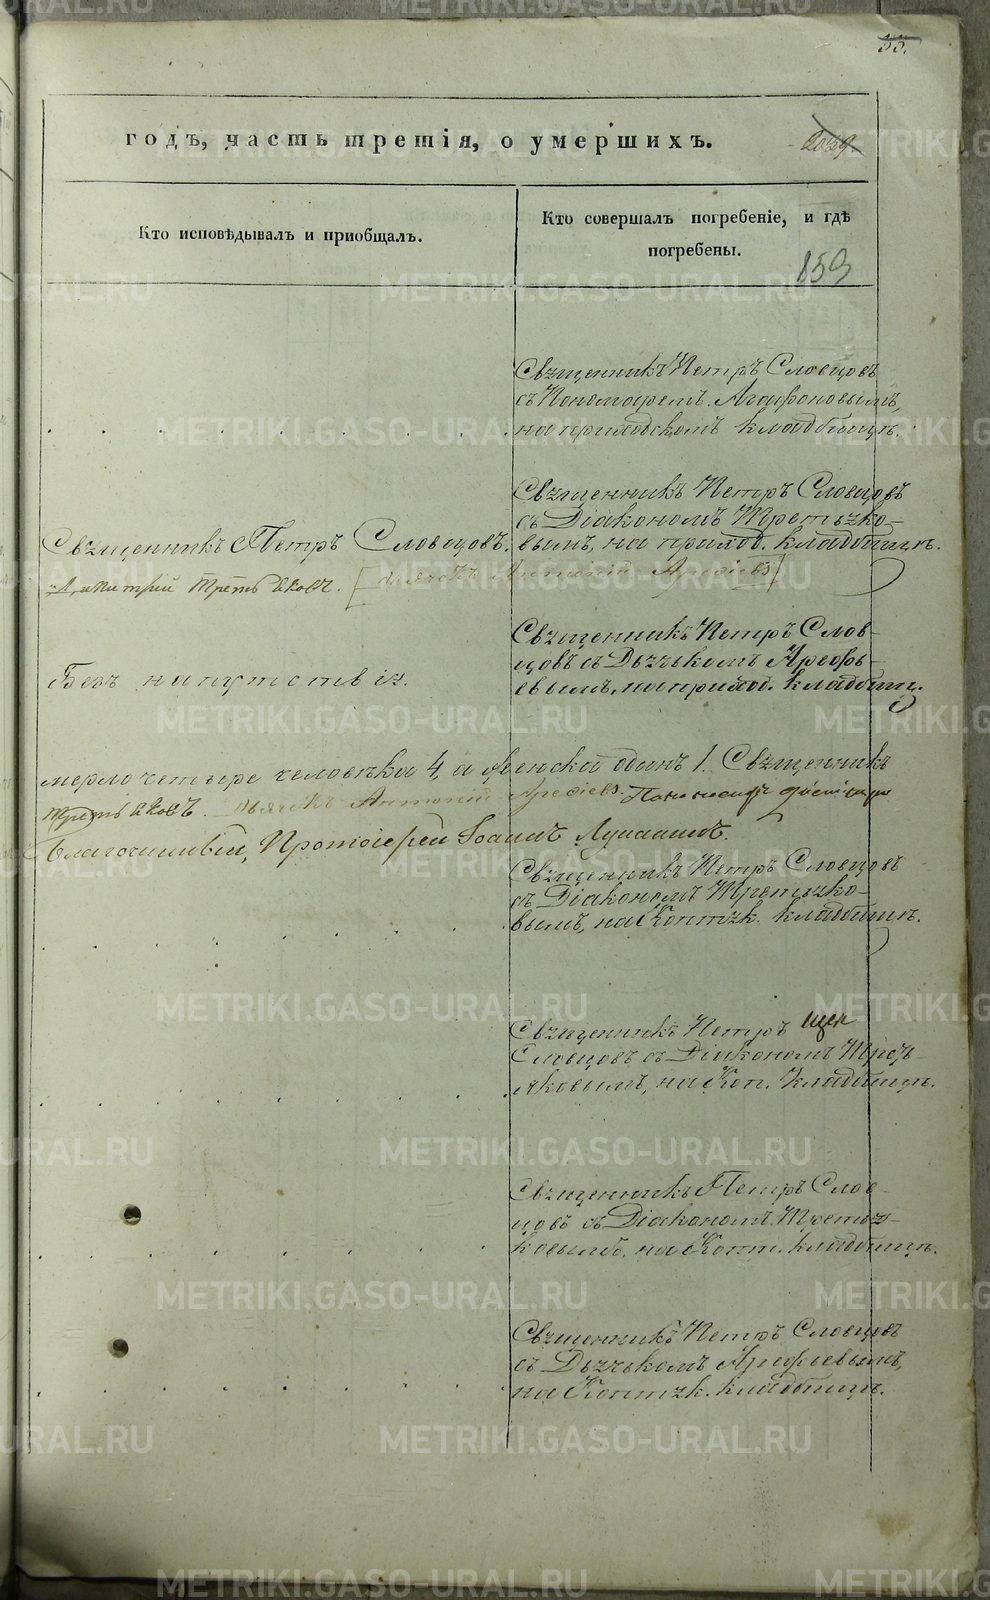 годъ, часть третія, о умершихъ.
Кто исповѣдывалъ и приобщалъ.
Кто совершалъ погребеніе, и гдѣ
погребены.
159
Священникъ Петръ Словцовъ
съ Пономаремъ Агафоновымъ,
на приходскомъ кладбищѣ.
Священникъ Петръ Словцовъ
съ Діакономъ Третьяко-
вымъ, на приход. кладбищѣ.
Священникъ Петръ Словцовъ.
Димитрій Третьяковъ. [дьячекъ Антоній Арефіевъ]
Священникъ Петръ Слов-
цовъ съ Дьячькомъ Арефь-
евымъ, на приход. кладбищ.
Безъ напутствія.
мерло четыре человѣка 4, а женска одинъ 1. Священникъ
Третьяковъ. Дьячекъ Антоній Арефіевъ. Пономарь
Благочинный, Протоіерей Іоаннъ Лукаинъ.
Священникъ Петръ Словцовъ
съ Діакономъ Третьяко-
вымъ, на Коптяк. кладбищѣ.
Священникъ Петръ
Словцовъ съ Діакономъ Треть-
яковымъ, на Коп. кладбищѣ.
Священникъ Петръ Слов-
цовъ съ Діакономъ Третья-
ковымъ, на Копт. кладбищѣ.
Священникъ Петръ Словцовъ
съ Дьячькомъ Арефіевымъ,
на Коптяк. кладбищѣ.
METRIKI.GASO-URAL.RU